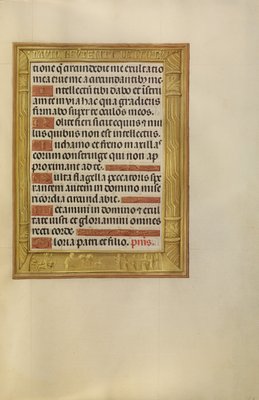 tione q̄ circundedit me exultatio
mea erue me a circundantibus me
Intellectū tibi dabo et istru
am te in via hac qua gradieris
firmabo super te oculos meos.
Nolite fieri sicut equus et mu
lus quibus non est intellectus
In chamo et freno maxillas
eorum constringe qui non ap
proximant ad te.
Multa flagella peccatoris spe
rantem autem in domino mise
ricordia circundabit.
Letamini in domino et exul
tate iusti et gloriamini omnes
recti corde
Gloria patri et filio. p̄us.